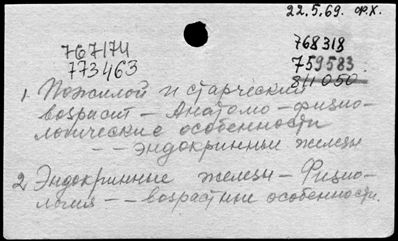 22.5.69. Ф.Х.
767174
773463
768318
759583
811050
1. Пожилой и старческий
возраст – Анатомо-физио-
логические особенности
– – эндокринные железы
2. Эндокринные железы – Физио-
логия – – возрастные особенности.